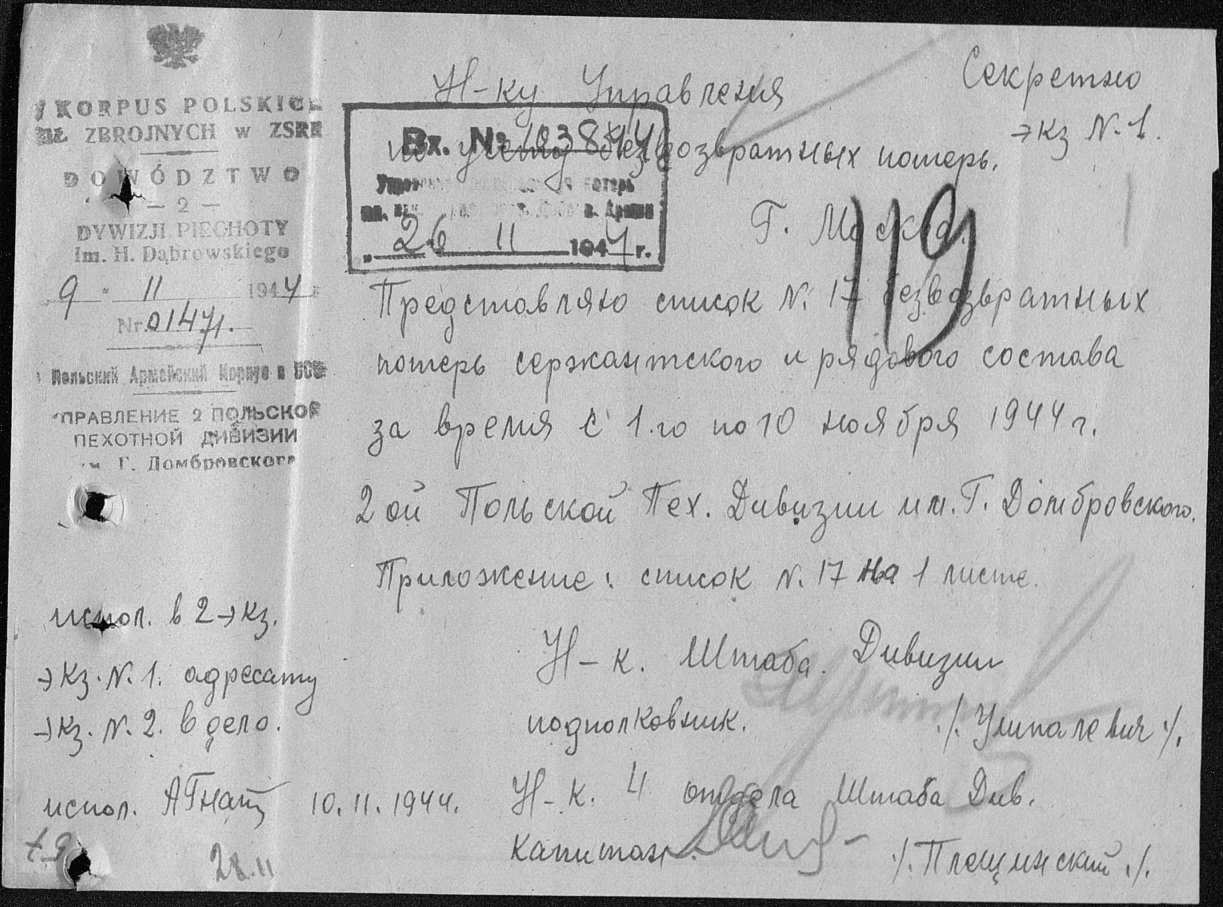 KORPUS POLSKICH
SIŁ ZBROJNYCH w ZSRR
DOWÓDZTWO
— 2 —
DYWIZJI PIECHOTY
Im. H. Dąbrowskiego
9 " 11 1944 r
Nr. 01471.
Польский Армейский Корпус в СССР
УПРАВЛЕНИЕ 2 ПОЛЬСКОЙ
ПЕХОТНОЙ ДИВИЗИИ
им. Г. Домбровского
Секретно
экз N. 1.
Н-ку Управления
по учету безвозвратных потерь.
Г. Москва.
Вх. №
потерь
Армии
„ 26 11 1944 г.
119
Представляю список N. 17 безвозвратных
потерь сержантского и рядового состава
за время с 1.го по 10 ноября 1944 г.
2 ой Польской Пех. Дивизии им. Г. Домбровского.
Приложение: список N. 17 на 1 листе.
испол. в 2 экз.
экз. N. 1. адресату
экз. N. 2. в дело.
испол. 10.11.1944.
28.11
Н-к. Штаба. Дивизии
подполковник. /. Умпалевич ./.
Н-к. 4 отдела Штаба Див.
капитан. ./. Плещинский ./.